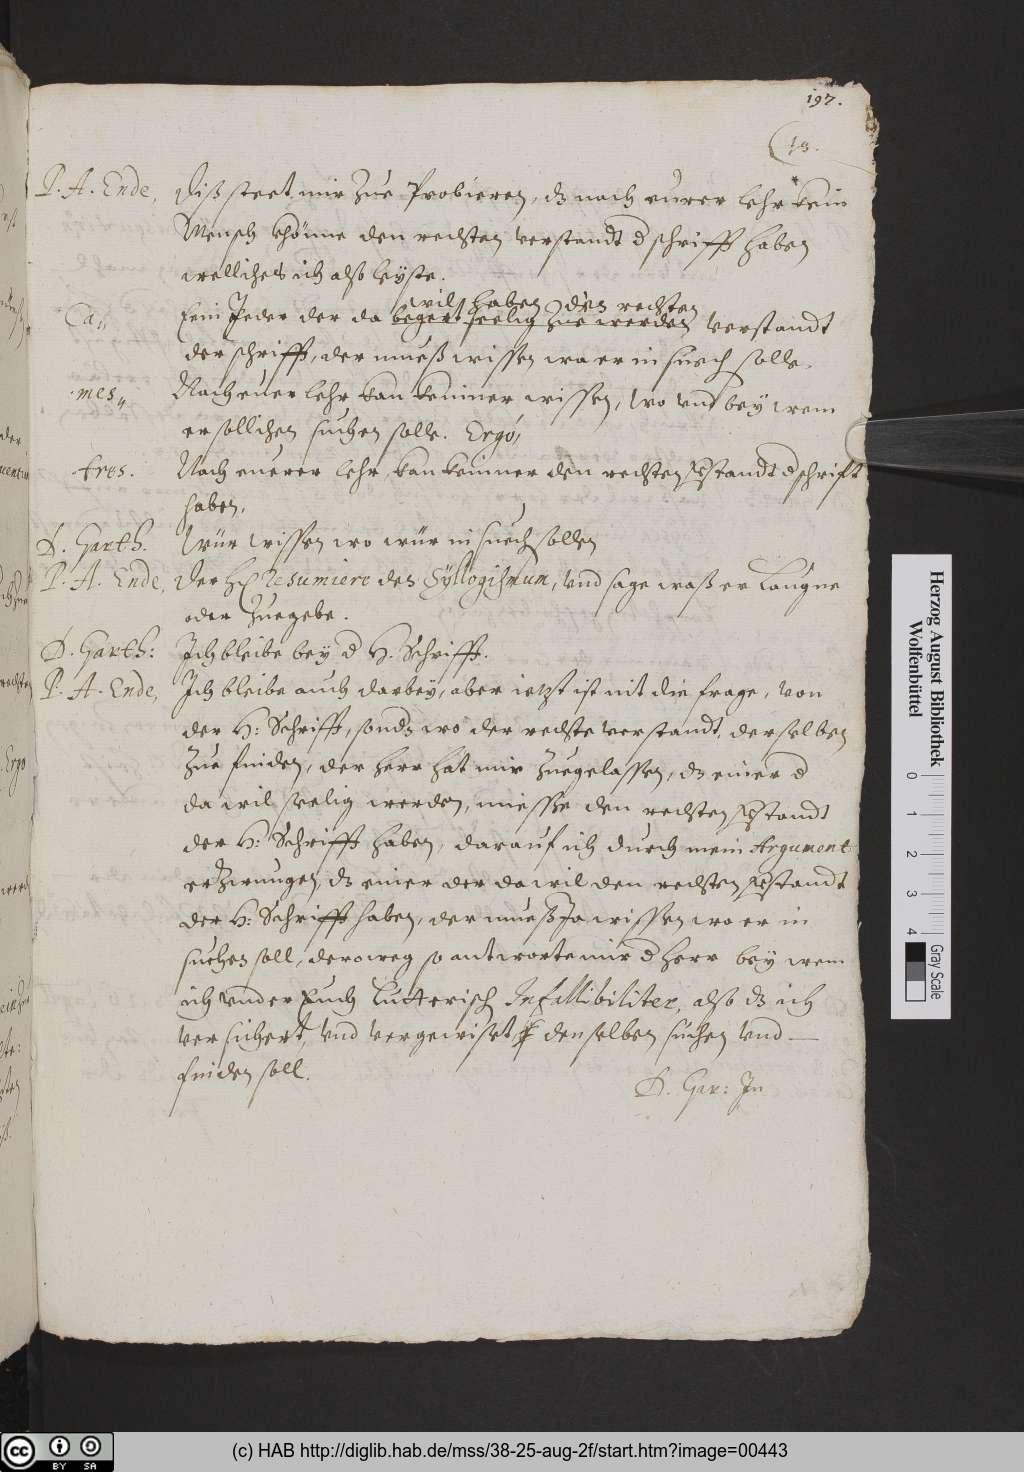 197.
(13.
P. A. Ende, Diß steet mir Zue Probieren, dz nach eurer lehr kein
Mensch khönne den rechten verstandt d schrifft haben
welliches ich alß leiste.
wil haben den rechten
Ca,, Ein Jeder der da begert seelig Zue werden verstandt
der schrifft, der mueß wissen wa er in such solle.
mes,, Nach euer lehr kan keiner wissen, wo vnd bey wem
er sollichen suchen solle. Ergo,
tres. Nach euerer lehr kan keiner den rechten verstandt d schrifft
haben.
D. Garth. Wür wissen wo wür in suech sollen
P. A. Ende, Der H. Resumiere den Syllogismum, vnd sage waß er Laugne
oder Zuegebe.
D. Garth: Ich bleibe bey d H. Schrifft.
P. A. Ende, Ich bleibe auch darbey, aber ietzt ist nit die frage, von
der H: Schrifft, sonder wo der rechte verstandt derselben
Zue finden, der herr hat mir Zuegelassen, dz einer d
da wil seelig werden, miesse den rechten verstandt
der H: Schrifft haben, darauf ich durch mein Argument
erzwungen, dz einer der da wil den rechten verstandt
der H: Schrifft haben, der mueß Ja wissen wo er in
suchen soll, deroweg so antworte mir d herr bey wem
ich vnder Euch Lutterisch Infallibiliter, also dz ich
versichert, vnd vergewiset denselben suchen vnd
finden soll.
D. Gar: In
Herzog August Bibliothek
Wolfenbüttel
0 1 2 3 4
Gray Scale
cc BY SA
(c) HAB http://diglib.hab.de/mss/38-25-aug-2f/start.htm?image=00443